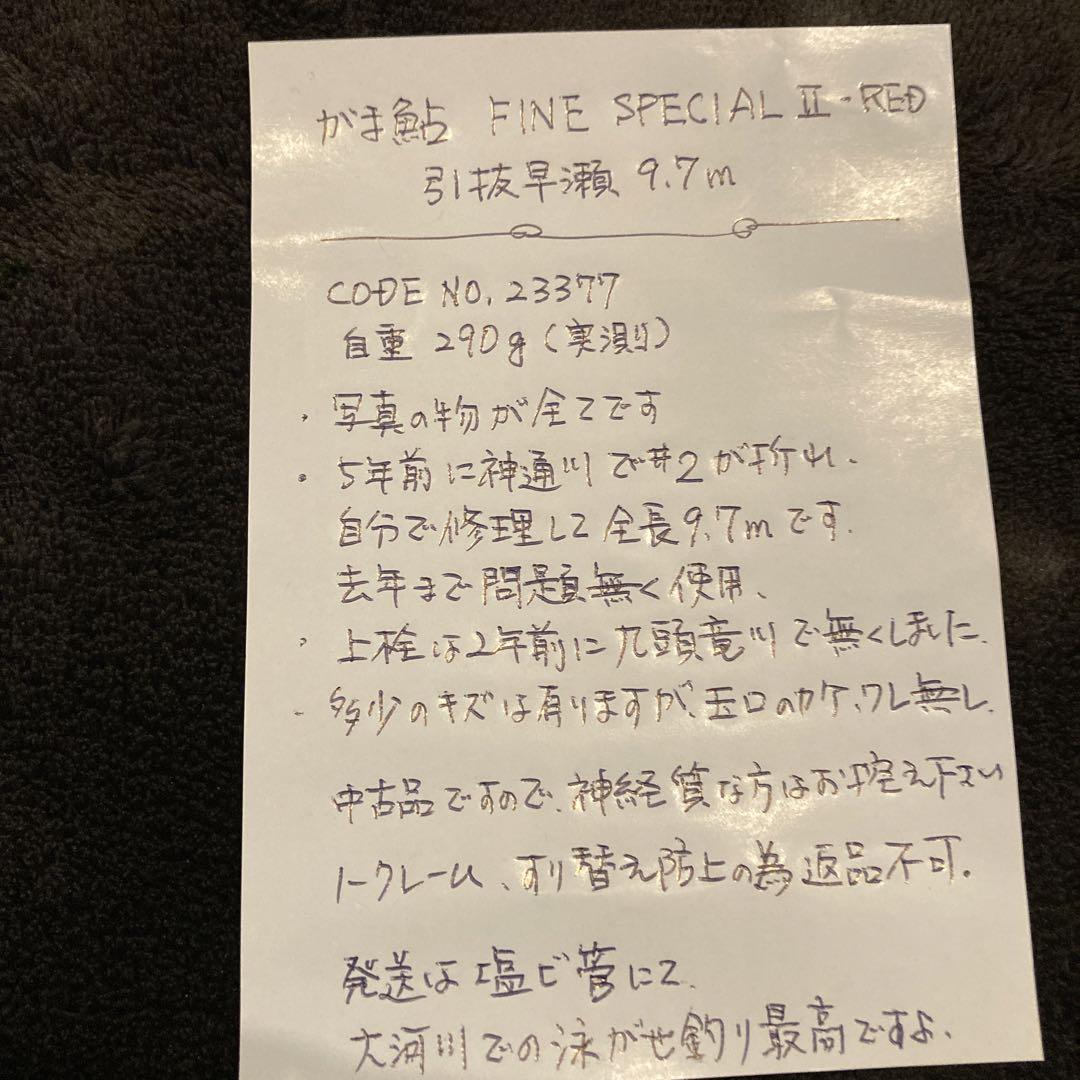 がま鮎 FINE SPECIAL Ⅱ-RED
引抜早瀬 9.7m
CODE NO. 23377
自重 290g (実測)
・写真の物が全てです
・5年前に神通川で#2が折れ、
自分で修理して全長9.7mです.
去年まで問題無く使用、
・上栓は2年前に九頭竜川で無くしました.
・多少のキズは有りますが、玉口のカケ、ワレ無し.
中古品ですので、神経質な方はお控え下さい
ノークレーム、すり替え防止の為返品不可.
発送は塩ビ管にて.
大河川での泳がせ釣り最高ですよ.